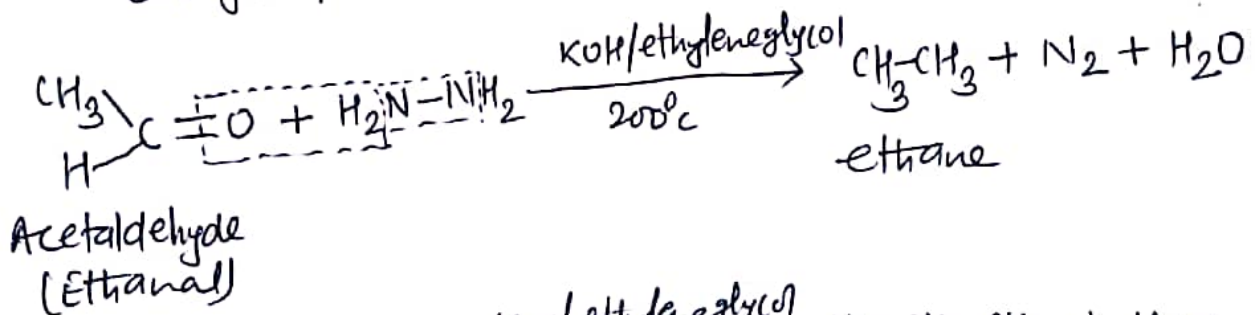 CH₃
H
C=O + H₂N-NH₂
KOH/ethyleneglycol
200°C
CH₃-CH₃ + N₂ + H₂O
ethane
Acetaldehyde
(Ethanal)